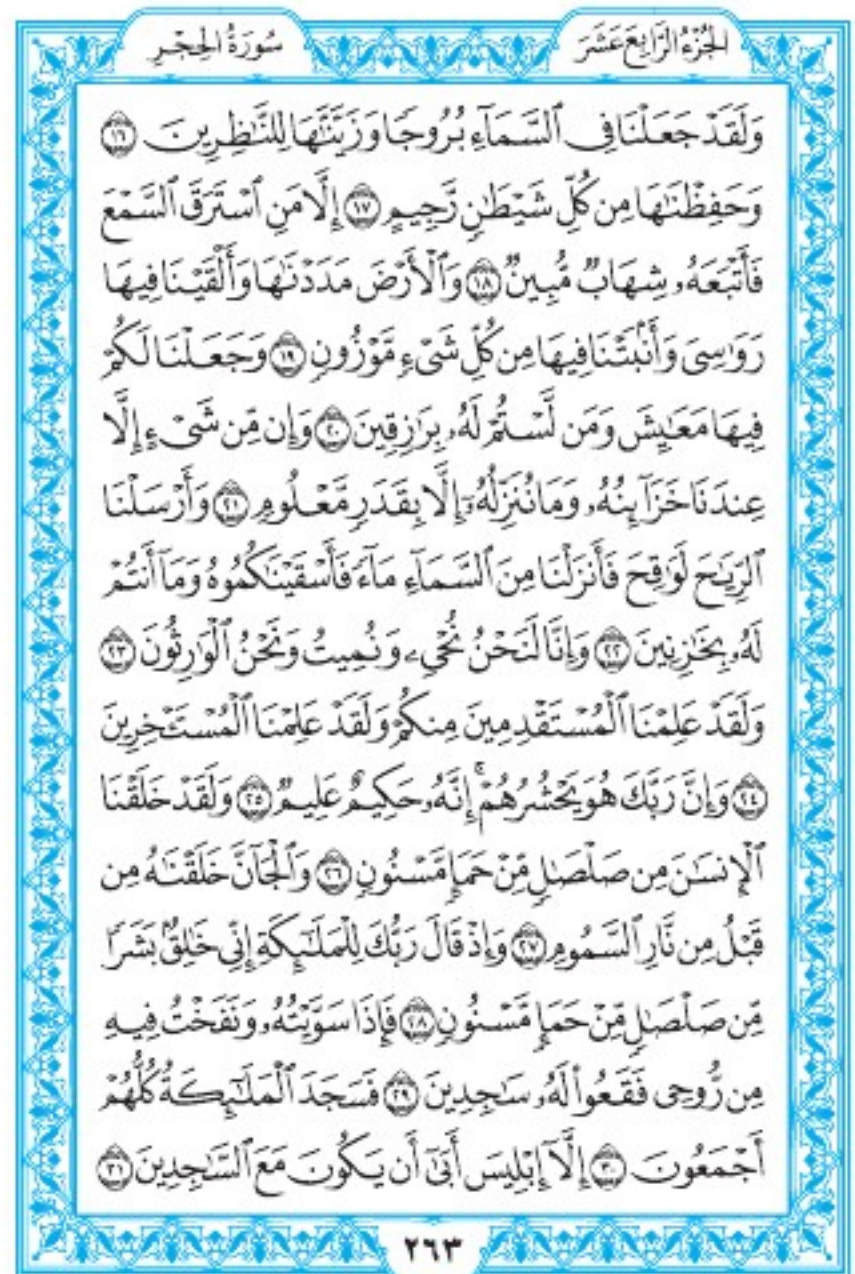 الجُزْءُ الرَّابِعَ عَشَرَ
سُورَةُ الحِجْرِ
وَلَقَدْ جَعَلْنَا فِي ٱلسَّمَآءِ بُرُوجًا وَزَيَّنَّٰهَا لِلنَّٰظِرِينَ ١٦
وَحَفِظْنَٰهَا مِن كُلِّ شَيْطَٰنٍ رَّجِيمٍ ١٧ إِلَّا مَنِ ٱسْتَرَقَ ٱلسَّمْعَ
فَأَتْبَعَهُۥ شِهَابٌ مُّبِينٌ ١٨ وَٱلْأَرْضَ مَدَدْنَٰهَا وَأَلْقَيْنَا فِيهَا
رَوَٰسِىَ وَأَنۢبَتْنَا فِيهَا مِن كُلِّ شَىْءٍ مَّوْزُونٍ ١٩ وَجَعَلْنَا لَكُمْ
فِيهَا مَعَٰيِشَ وَمَن لَّسْتُمْ لَهُۥ بِرَٰزِقِينَ ٢٠ وَإِن مِّن شَىْءٍ إِلَّا
عِندَنَا خَزَآئِنُهُۥ وَمَا نُنَزِّلُهُۥٓ إِلَّا بِقَدَرٍ مَّعْلُومٍ ٢١ وَأَرْسَلْنَا
ٱلرِّيَٰحَ لَوَٰقِحَ فَأَنزَلْنَا مِنَ ٱلسَّمَآءِ مَآءً فَأَسْقَيْنَٰكُمُوهُ وَمَآ أَنتُمْ
لَهُۥ بِخَٰزِنِينَ ٢٢ وَإِنَّا لَنَحْنُ نُحْىِۦ وَنُمِيتُ وَنَحْنُ ٱلْوَٰرِثُونَ ٢٣
وَلَقَدْ عَلِمْنَا ٱلْمُسْتَقْدِمِينَ مِنكُمْ وَلَقَدْ عَلِمْنَا ٱلْمُسْتَـْٔخِرِينَ
٢٤ وَإِنَّ رَبَّكَ هُوَ يَحْشُرُهُمْ ۚ إِنَّهُۥ حَكِيمٌ عَلِيمٌ ٢٥ وَلَقَدْ خَلَقْنَا
ٱلْإِنسَٰنَ مِن صَلْصَٰلٍ مِّنْ حَمَإٍ مَّسْنُونٍ ٢٦ وَٱلْجَآنَّ خَلَقْنَٰهُ مِن
قَبْلُ مِن نَّارِ ٱلسَّمُومِ ٢٧ وَإِذْ قَالَ رَبُّكَ لِلْمَلَٰٓئِكَةِ إِنِّى خَٰلِقٌۢ بَشَرًا
مِّن صَلْصَٰلٍ مِّنْ حَمَإٍ مَّسْنُونٍ ٢٨ فَإِذَا سَوَّيْتُهُۥ وَنَفَخْتُ فِيهِ
مِن رُّوحِى فَقَعُوا۟ لَهُۥ سَٰجِدِينَ ٢٩ فَسَجَدَ ٱلْمَلَٰٓئِكَةُ كُلُّهُمْ
أَجْمَعُونَ ٣٠ إِلَّآ إِبْلِيسَ أَبَىٰٓ أَن يَكُونَ مَعَ ٱلسَّٰجِدِينَ ٣١
٢٦٣